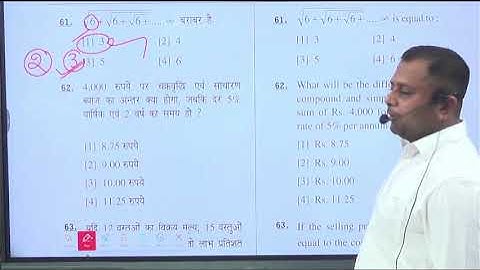 61. √6 + √6 + √6 + .... ∞ बराबर है
[1] 3 [2] 4
[3] 5 [4] 6
2 3
62. 4,000 रुपये पर चक्रवृद्धि एवं साधारण
ब्याज का अन्तर क्या होगा, जबकि दर 5%
वार्षिक एवं 2 वर्ष का समय हो ?
[1] 8.75 रुपये
[2] 9.00 रुपये
[3] 10.00 रुपये
[4] 11.25 रुपये
63. यदि 12 वस्तुओं का विक्रय मूल्य, 15 वस्तुओं
तो लाभ प्रतिशत
61. √6 + √6 + √6 + .... ∞ is equal to :
[1] 3 [2] 4
[3] 5 [4] 6
62. What will be the diff
compound and simp
sum of Rs. 4,000 fo
rate of 5% per annum
[1] Rs. 8.75
[2] Rs. 9.00
[3] Rs. 10.00
[4] Rs. 11.25
63. If the selling pr
equal to the co